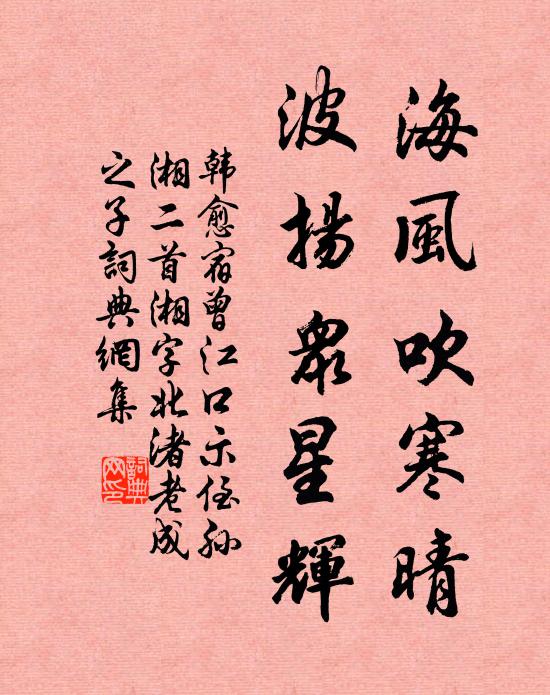 海風吹寒晴
波揚衆星輝
韩愈宿曾江口示侄孙
湘二首湘字北渚老成
之子詞典網集
詞典
网印